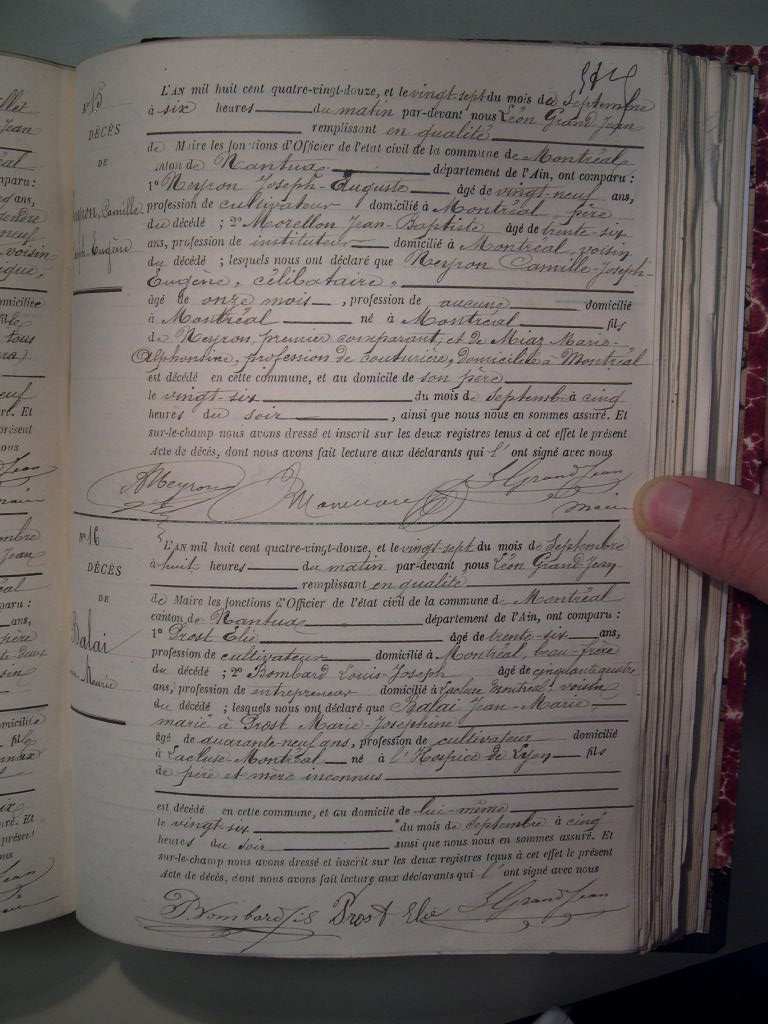 N° 15
DÉCÈS
DE
Camille
Eugène
L'AN mil huit cent quatre-vingt-douze, et le vingt-sept du mois de Septembre
à six heures du matin par-devant nous Léon Grand Jean
remplissant en qualité
de Maire les fonctions d'Officier de l'état civil de la commune de Montréal
canton de Nantua département de l'Ain, ont comparu :
1° Neyron Joseph-Auguste âgé de vingt-neuf ans,
profession de cultivateur domicilié à Montréal, père
du décédé ; 2° Morellon Jean-Baptiste âgé de trente-six
ans, profession de instituteur domicilié à Montréal, voisin
du décédé ; lesquels nous ont déclaré que Neyron Camille-Joseph-
Eugène, célibataire,
âgé de onze mois, profession de aucune domicilié
à Montréal né à Montréal fils
de Neyron, premier comparant, et de Marie-
Alphonsine, profession de couturière, domiciliée à Montréal
est décédé en cette commune, et au domicile de son père
le vingt-six du mois de Septembre à cinq
heures du soir, ainsi que nous nous en sommes assuré. Et
sur-le-champ nous avons dressé et inscrit sur les deux registres tenus à cet effet le présent
Acte de décès, dont nous avons fait lecture aux déclarants qui l'ont signé avec nous
ANeyron LGrandJean
maire
N° 16
DÉCÈS
DE
Balai
L'AN mil huit cent quatre-vingt-douze, et le vingt-sept du mois de Septembre
à huit heures du matin par-devant nous Léon Grand Jean
remplissant en qualité
de Maire les fonctions d'Officier de l'état civil de la commune d Montréal
canton de Nantua département de l'Ain, ont comparu :
1° Prost Elie âgé de trente-six ans,
profession de cultivateur domicilié à Montréal, beau-frère
du décédé ; 2° Bombard Louis-Joseph âgé de cinquante quatre
ans, profession de entrepreneur domicilié à Lacluse Montréal voisin
du décédé ; lesquels nous ont déclaré que Balai Jean-Marie
marié à Prost Marie-Josephine
âgé de quarante-neuf ans, profession de cultivateur domicilié
à Lacluse-Montréal né à l'Hospice de Lyon fils
de père et mère inconnus
est décédé en cette commune, et au domicile de lui-même
le vingt-six du mois de Septembre à cinq
heures du soir ainsi que nous nous en sommes assuré. Et
sur-le-champ nous avons dressé et inscrit sur les deux registres tenus à cet effet le présent
Acte de décès, dont nous avons fait lecture aux déclarants qui l'ont signé avec nous
Bombard Prost Elie LGrandJean